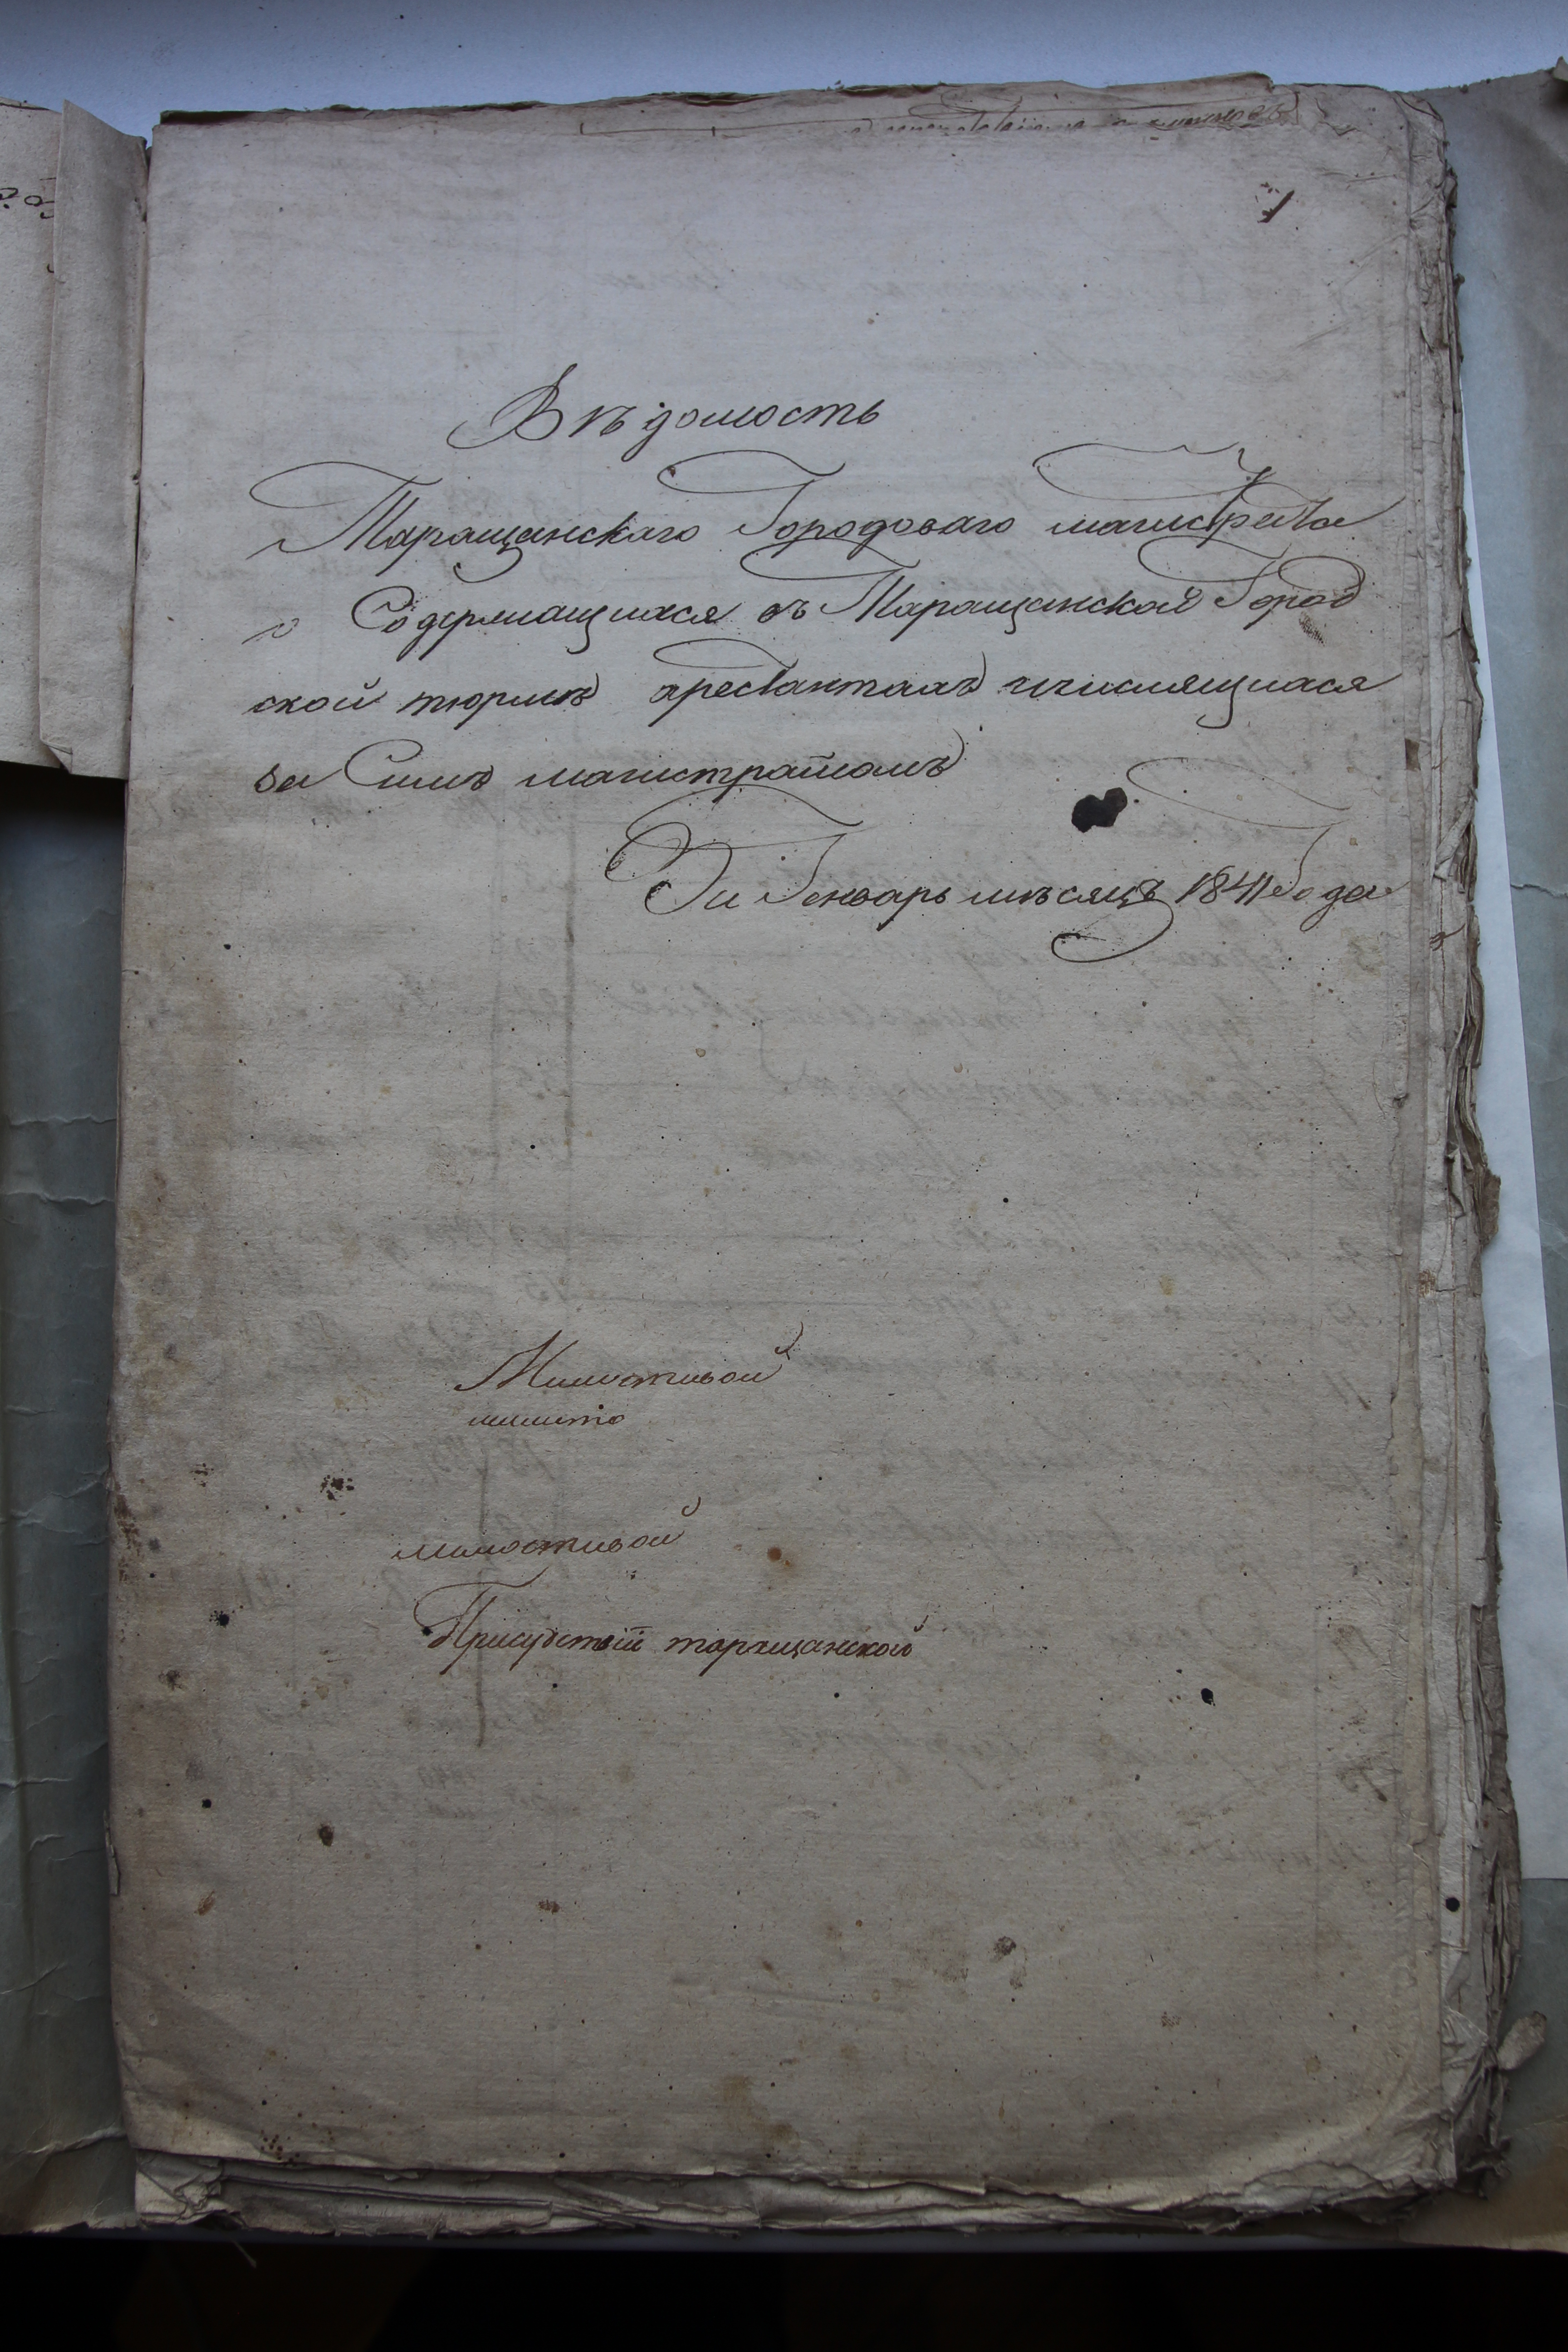 1
Вѣдомость
Таращанскаго Городоваго магистрата
о Содержащихся въ Таращанской Город
ской тюрмѣ арестантахъ числящихся
за Симъ магистратомъ
За Генварь мѣсяцъ 1841 Года
Милостивой
милисто
милостивой
Присудствій таращанской